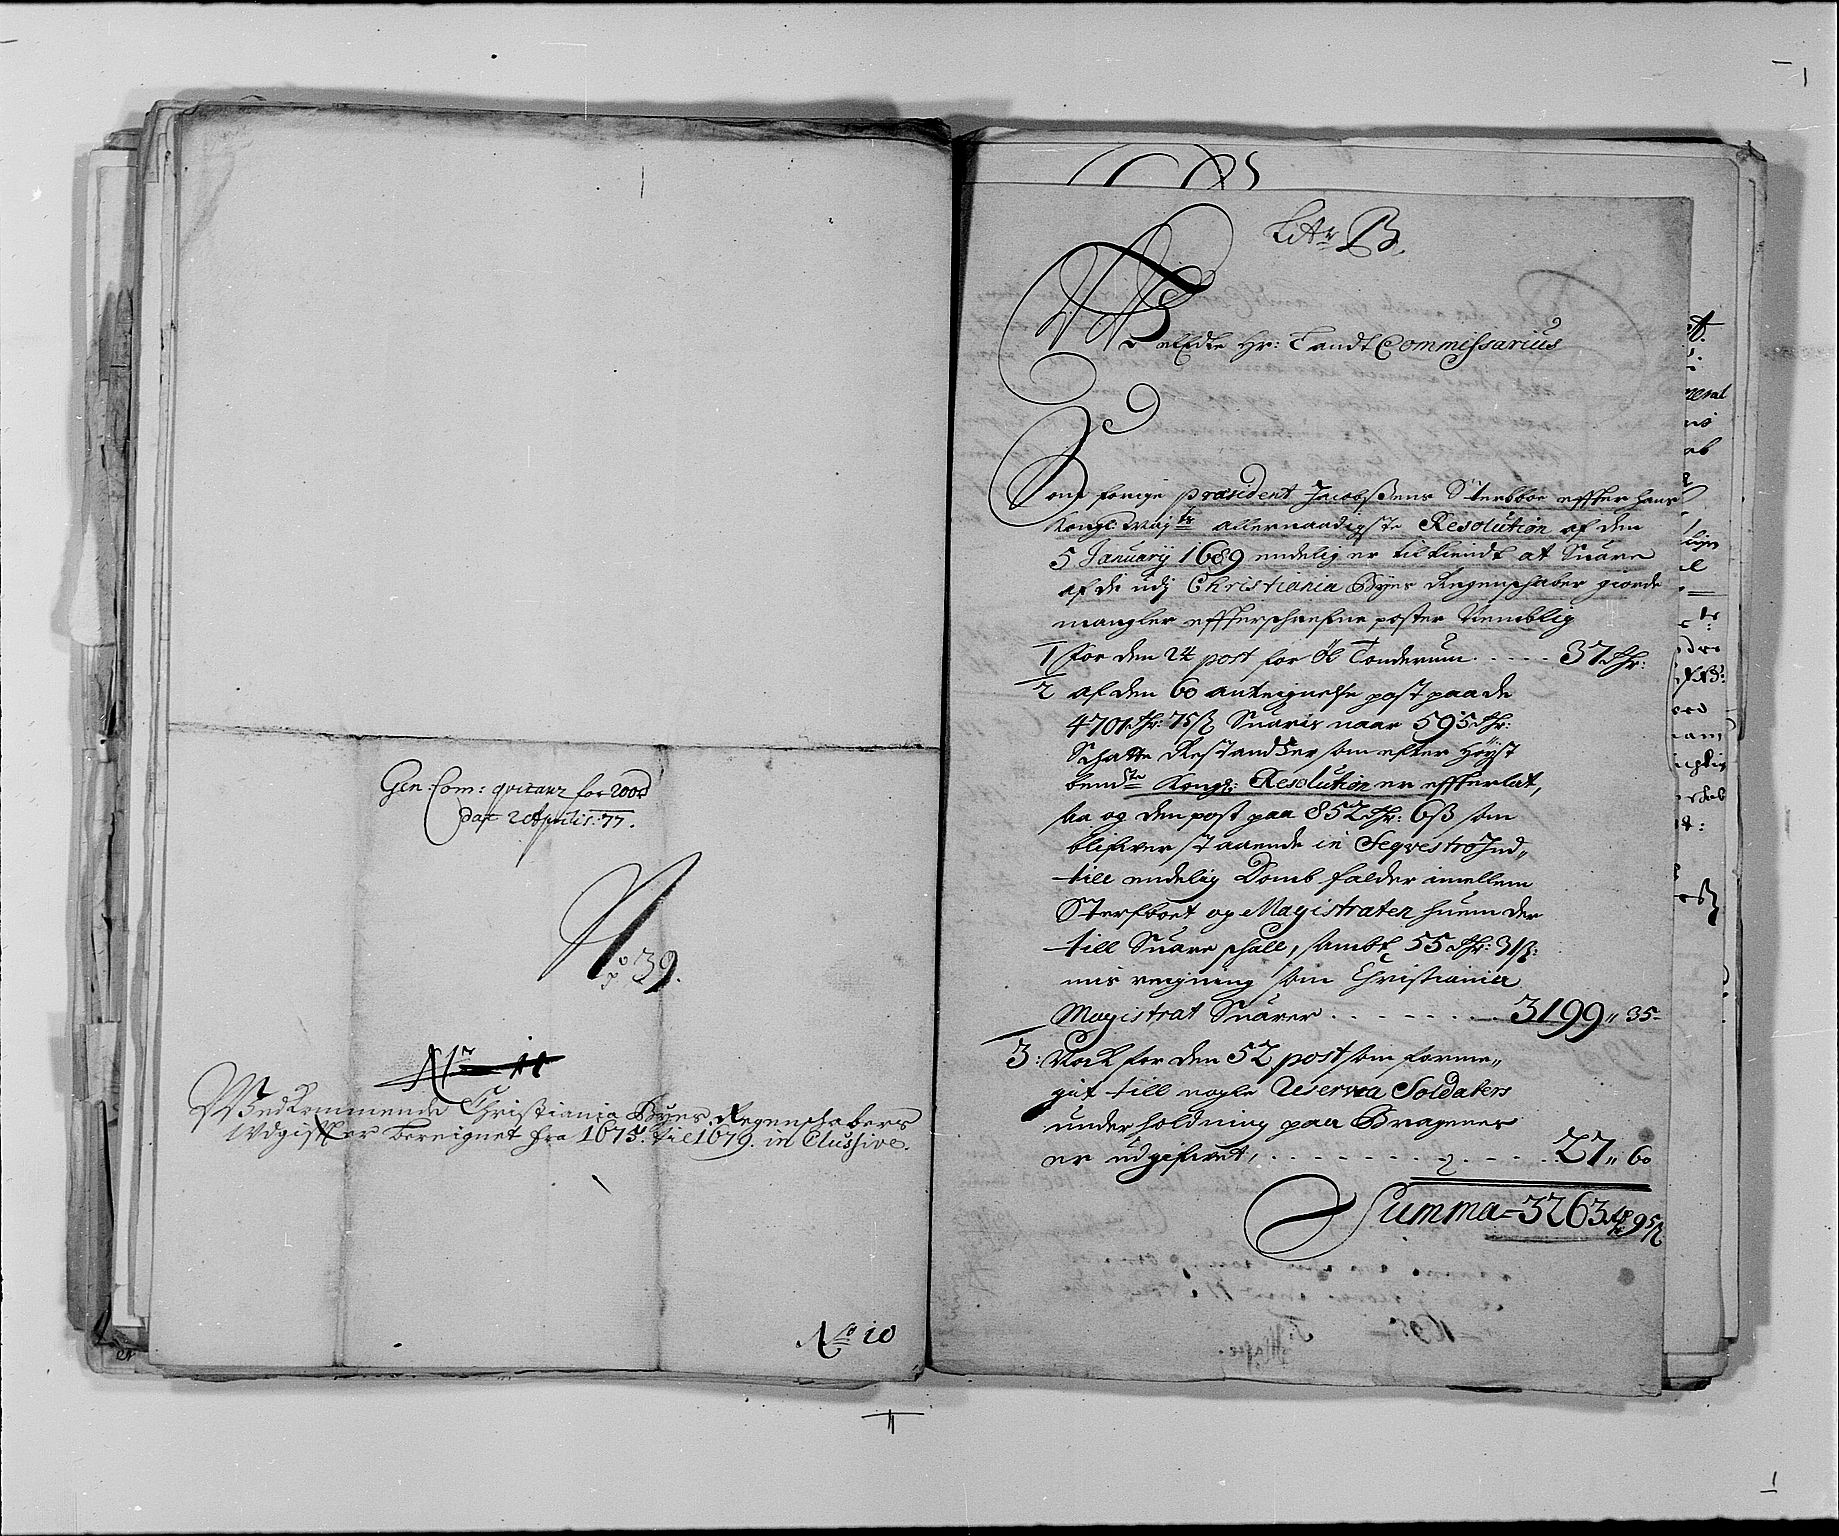 Gen: Com: qvitanz for 200 rd
dat 2 Aprilis: 77.
No 39.
Vedkommende Christiania Byes Regenschabers
Udgifter beregnet fra 1675. til 1679. inclusive.
No 10
Litr B.
Velædle Hr: Landt Commissarius
Som forige præsident Jacobßens Sterbboe effter hans
Kongl: Maÿts allernaadigste Resolution af den
5 Januarÿ 1689 endelig er tilkiendt at Suare
af de udj Christiania Byes Regenschaber giorde
mangler effterschrefne poster Nemblig
1 For den 24 post for Øl Tønderum . . . . 37 dr:
2 af den 60 antegnelse post paa de
4701 dr: 75 ß Suaris naar 595 dr:
Schatte Restandser som efter Høyst
bemte Kongl: Resolution er effterlat,
saa og den post paa 852 dr: 6 ß som
blifver staaende in Seqvestro Ind„
till endelig Domb falder imellem
Sterfboet og Magistraten huem der
till Suare schall, sambt 55 dr: 31 ß:
mis reigning som Christiania
Magistrat Suarer . . . . . . . 3199 „ 35 -
3: Nock for den 52 post som forme„
git till nogle Reserva Soldaters
underholdning paa Bragenes
er udgifvet, . . . . . . . . . . 27 „ 60
Summa = 3263 dr 95 ß